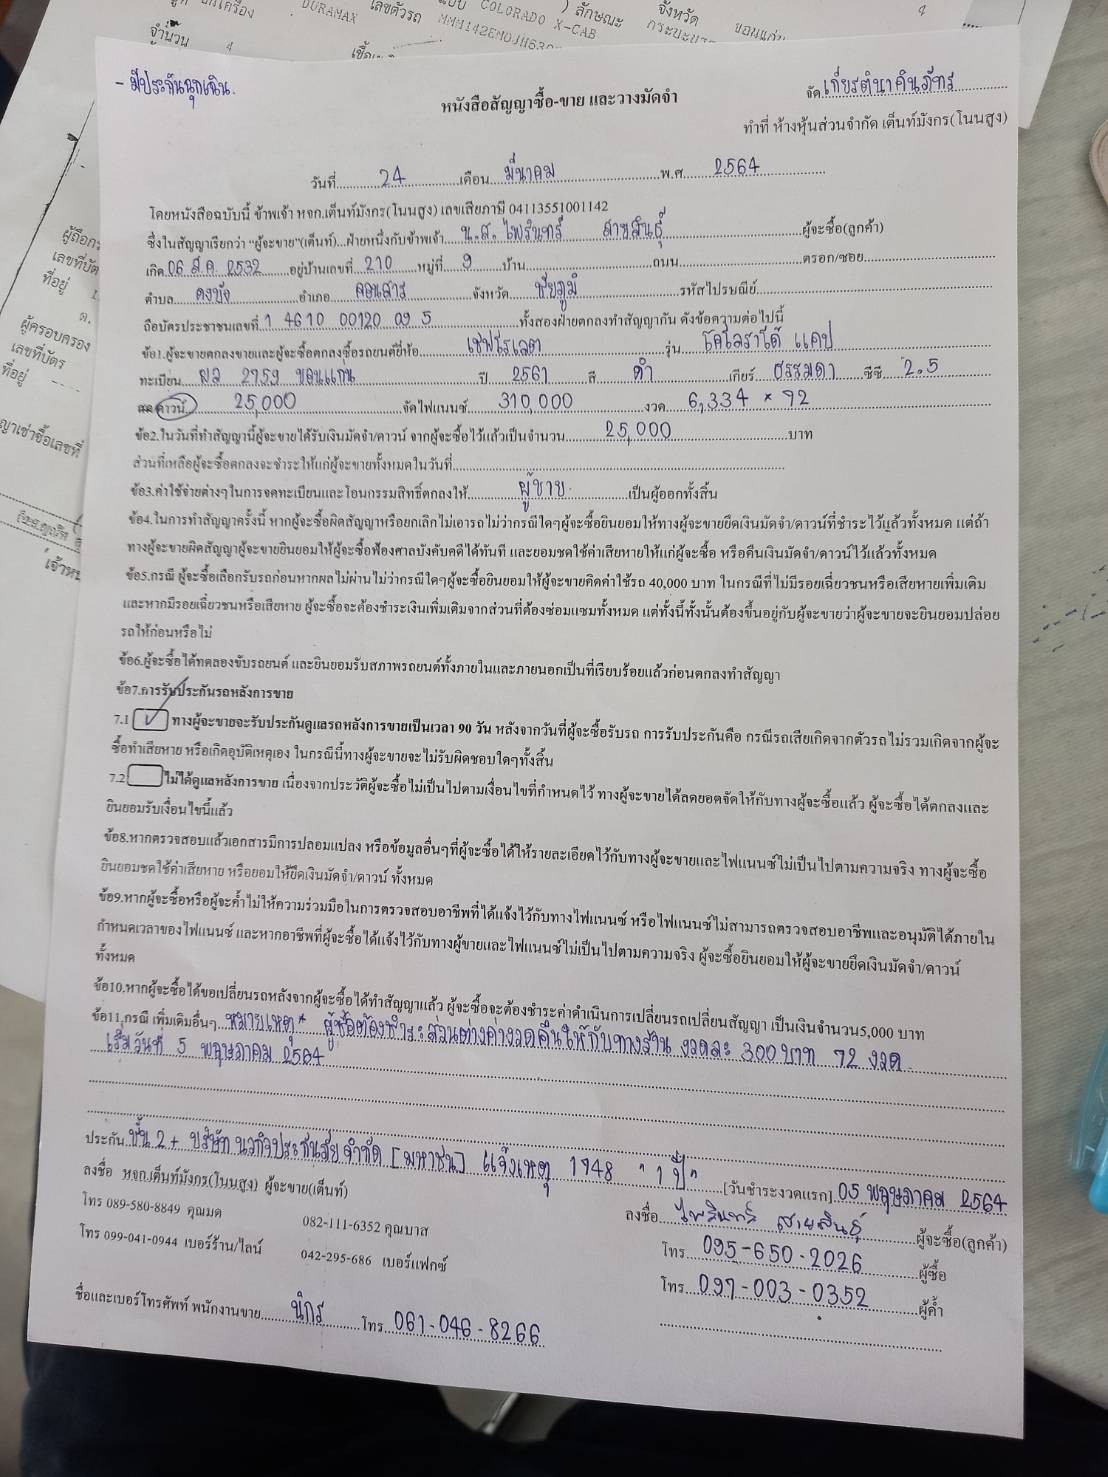 จำนวน 4
DURAMAX เลขตัวรถ MMM142EM0JH63
COLORADO X-CAB ลักษณะ
จังหวัด ขอนแก่น
4
- มีประกันฉุกเฉิน.
จัด เกียรตินาคินภัทร
หนังสือสัญญาซื้อ-ขาย และวางมัดจำ
ทำที่ ห้างหุ้นส่วนจำกัด เต็นท์มังกร(โนนสูง)
วันที่ 24 เดือน มีนาคม พ.ศ. 2564
โดยหนังสือฉบับนี้ ข้าพเจ้า หจก.เต็นท์มังกร(โนนสูง) เลขเสียภาษี 04113551001142
ซึ่งในสัญญาเรียกว่า "ผู้จะขาย"(เต็นท์)...ฝ่ายหนึ่งกับข้าพเจ้า น.ส. ไพรินทร์ สายสินธุ์ ผู้จะซื้อ(ลูกค้า)
เกิด 06 มี.ค. 2532 อยู่บ้านเลขที่ 210 หมู่ที่ 9 บ้าน ถนน ตรอก/ซอย
ตำบล ดงบัง อำเภอ คอนสาร จังหวัด ชัยภูมิ รหัสไปรษณีย์
ถือบัตรประชาชนเลขที่ 1 4610 00120 09 5 ทั้งสองฝ่ายตกลงทำสัญญากัน ดังข้อความต่อไปนี้
ข้อ1.ผู้จะขายตกลงขายและผู้จะซื้อตกลงซื้อรถยนต์ยี่ห้อ เชฟโรเลต รุ่น โคโลราโด้ แคป
ทะเบียน ผล 2759 ขอนแก่น ปี 2561 สี ดำ เกียร์ ธรรมดา ซีซี 2.5
สด ดาวน์ 25,000 จัดไฟแนนซ์ 310,000 งวด 6,334 × 72
ข้อ2.ในวันที่ทำสัญญานี้ผู้จะขายได้รับเงินมัดจำ/ดาวน์ จากผู้จะซื้อไว้แล้วเป็นจำนวน 25,000 บาท
ส่วนที่เหลือผู้จะซื้อตกลงจะชำระให้แก่ผู้จะขายทั้งหมดในวันที่
ข้อ3.ค่าใช้จ่ายต่างๆในการจดทะเบียนและโอนกรรมสิทธิ์ตกลงให้ ผู้ขาย เป็นผู้ออกทั้งสิ้น
ข้อ4.ในการทำสัญญาครั้งนี้ หากผู้จะซื้อผิดสัญญาหรือยกเลิกไม่เอารถไม่ว่ากรณีใดๆผู้จะซื้อยินยอมให้ทางผู้จะขายยึดเงินมัดจำ/ดาวน์ที่ชำระไว้แล้วทั้งหมด แต่ถ้า
ทางผู้จะขายผิดสัญญาผู้จะขายยินยอมให้ผู้จะซื้อฟ้องศาลบังคับคดีได้ทันที และยอมชดใช้ค่าเสียหายให้แก่ผู้จะซื้อ หรือคืนเงินมัดจำ/ดาวน์ไว้แล้วทั้งหมด
ข้อ5.กรณี ผู้จะซื้อเลือกรับรถก่อนหากผลไม่ผ่านไม่ว่ากรณีใดๆผู้จะซื้อยินยอมให้ผู้จะขายคิดค่าใช้รถ 40,000 บาท ในกรณีที่ไม่มีรอยเฉี่ยวชนหรือเสียหายเพิ่มเติม
และหากมีรอยเฉี่ยวชนหรือเสียหาย ผู้จะซื้อจะต้องชำระเงินเพิ่มเติมจากส่วนที่ต้องซ่อมแซมทั้งหมด แต่ทั้งนี้ทั้งนั้นต้องขึ้นอยู่กับผู้จะขายว่าผู้จะขายจะยินยอมปล่อย
รถให้ก่อนหรือไม่
ข้อ6.ผู้จะซื้อได้ทดลองขับรถยนต์ และยินยอมรับสภาพรถยนต์ทั้งภายในและภายนอกเป็นที่เรียบร้อยแล้วก่อนตกลงทำสัญญา
ข้อ7.การรับประกันรถหลังการขาย
7.1 ✓ ทางผู้จะขายจะรับประกันดูแลรถหลังการขายเป็นเวลา 90 วัน หลังจากวันที่ผู้จะซื้อรับรถ การรับประกันคือ กรณีรถเสียเกิดจากตัวรถไม่รวมเกิดจากผู้จะ
ซื้อทำเสียหาย หรือเกิดอุบัติเหตุเอง ในกรณีนี้ทางผู้จะขายจะไม่รับผิดชอบใดๆทั้งสิ้น
7.2 ไม่ได้ดูแลหลังการขาย เนื่องจากประวัติผู้จะซื้อไม่เป็นไปตามเงื่อนไขที่กำหนดไว้ ทางผู้จะขายได้ลดยอดจัดให้กับทางผู้จะซื้อแล้ว ผู้จะซื้อได้ตกลงและ
ยินยอมรับเงื่อนไขนี้แล้ว
ข้อ8.หากตรวจสอบแล้วเอกสารมีการปลอมแปลง หรือข้อมูลอื่นๆที่ผู้จะซื้อได้ให้รายละเอียดไว้กับทางผู้จะขายและไฟแนนซ์ไม่เป็นไปตามความจริง ทางผู้จะซื้อ
ยินยอมชดใช้ค่าเสียหาย หรือยอมให้ยึดเงินมัดจำ/ดาวน์ ทั้งหมด
ข้อ9.หากผู้จะซื้อหรือผู้จะค้ำไม่ให้ความร่วมมือในการตรวจสอบอาชีพที่ได้แจ้งไว้กับทางไฟแนนซ์ หรือไฟแนนซ์ไม่สามารถตรวจสอบอาชีพและอนุมัติได้ภายใน
กำหนดเวลาของไฟแนนซ์ และหากอาชีพที่ผู้จะซื้อได้แจ้งไว้กับทางผู้ขายและไฟแนนซ์ไม่เป็นไปตามความจริง ผู้จะซื้อยินยอมให้ผู้จะขายยึดเงินมัดจำ/ดาวน์
ทั้งหมด
ข้อ10.หากผู้จะซื้อได้ขอเปลี่ยนรถหลังจากผู้จะซื้อได้ทำสัญญาแล้ว ผู้จะซื้อจะต้องชำระค่าดำเนินการเปลี่ยนรถเปลี่ยนสัญญา เป็นเงินจำนวน5,000 บาท
ข้อ11.กรณี เพิ่มเติมอื่นๆ หมายเหตุ* ผู้ซื้อต้องชำระส่วนต่างค่างวดคืนให้กับทางร้าน งวดละ 300 บาท 72 งวด
เริ่มวันที่ 5 พฤษภาคม 2564
ประกัน ชั้น 2+ บริษัท นวกิจประกันภัย จำกัด [มหาชน] แจ้งเหตุ 1748 "1 ปี"
[วันชำระงวดแรก] 05 พฤษภาคม 2564
ลงชื่อ หจก.เต็นท์มังกร(โนนสูง) ผู้จะขาย(เต็นท์)
ลงชื่อ ไพรินทร์ สายสินธุ์ ผู้จะซื้อ(ลูกค้า)
โทร 089-580-8849 คุณมด 082-111-6352 คุณบาส
โทร 095-650-2026 ผู้ซื้อ
โทร 099-041-0944 เบอร์ร้าน/ไลน์ 042-295-686 เบอร์แฟกซ์
โทร 097-003-0352 ผู้ค้ำ
ชื่อและเบอร์โทรศัพท์ พนักงานขาย นิกร โทร 061-046-8266
ผู้ถือกร
เลขที่บัต
ที่อยู่
ผู้ครอบครอง
เลขที่บัตร
ที่อยู่
ญาเช่าซื้อเลขที่